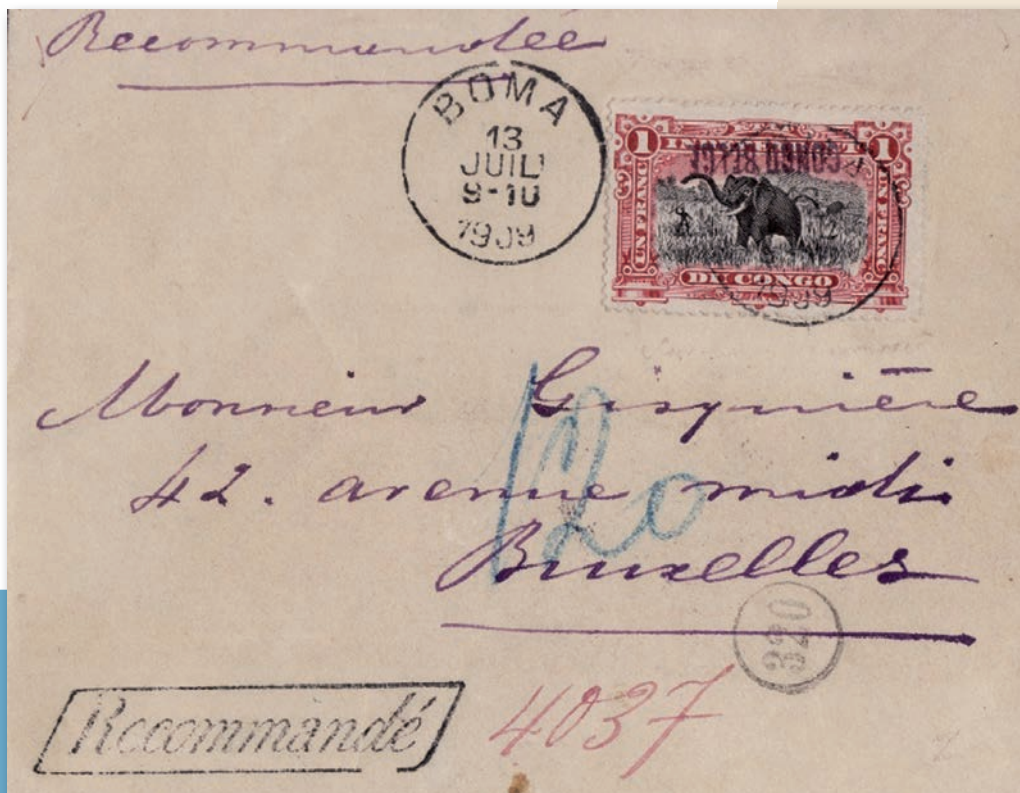 Recommandée
BOMA
13
JUIL
9-10
1909
1
1
CONGO BELGE
UN FRANC
UN FRANC
DU CONGO
1909
Monsieur Gisquière
42. avenue midi
Bruxelles
120
320
Recommandé
4037